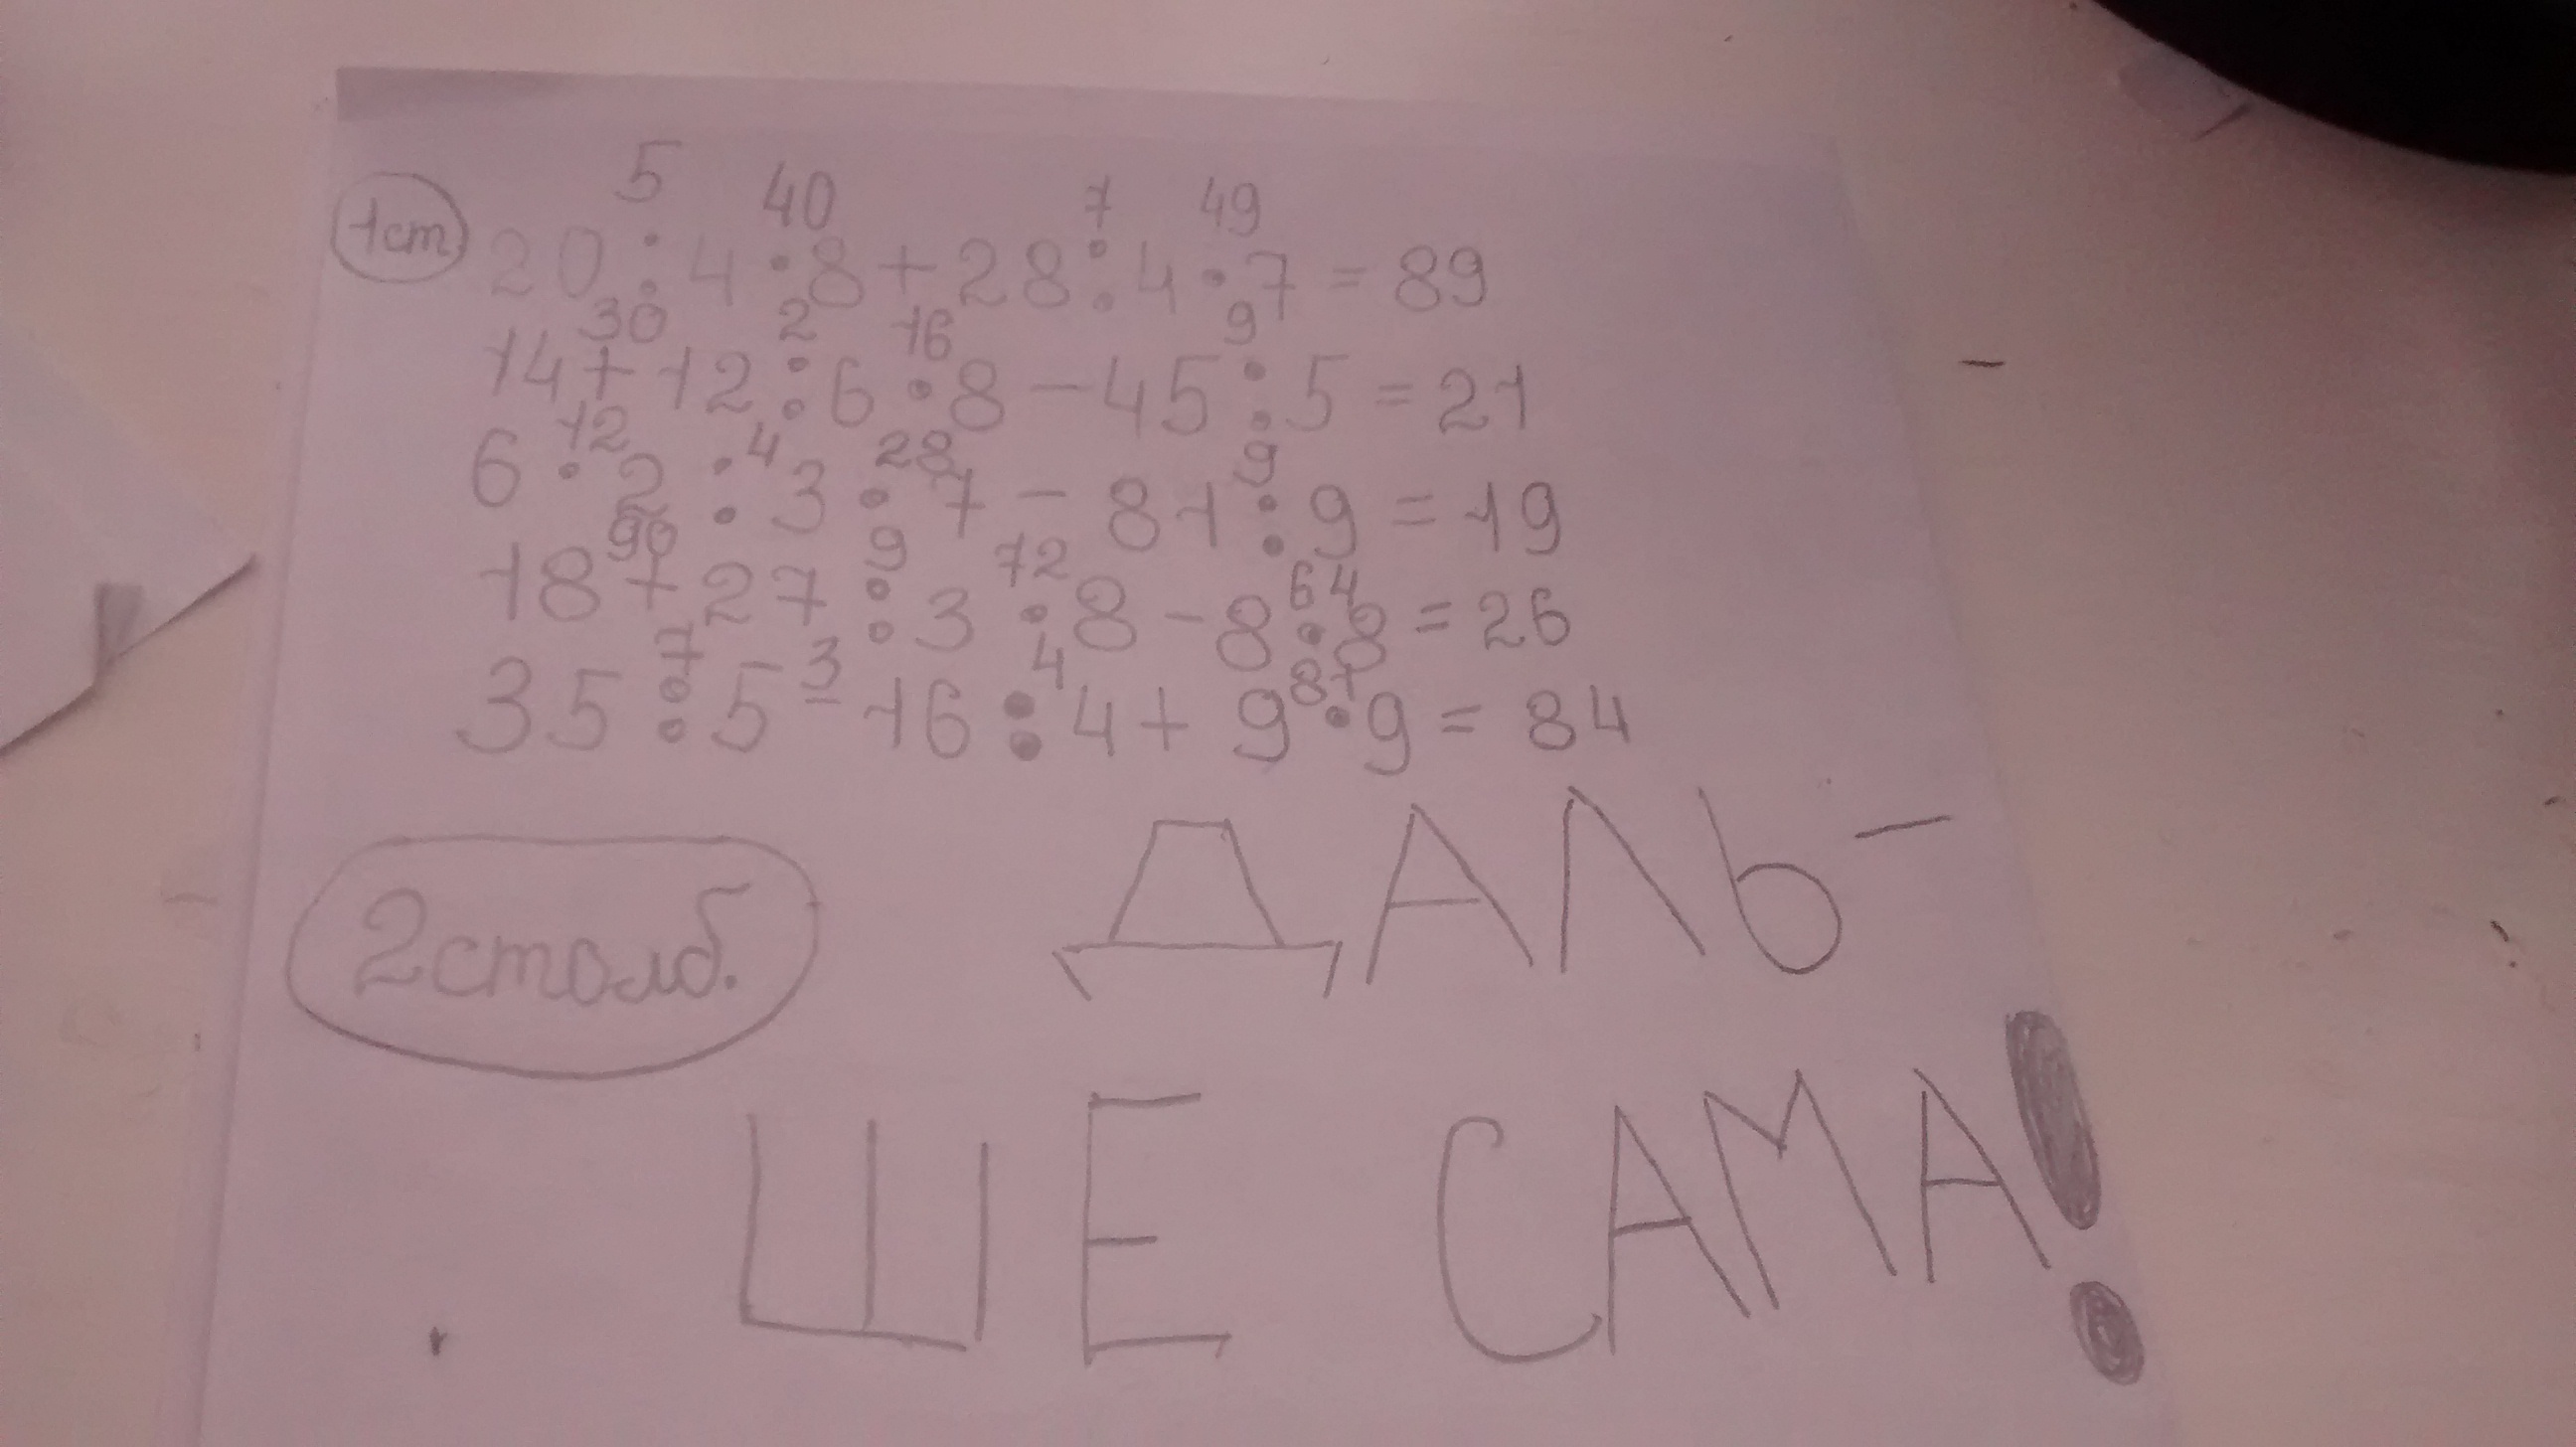 5 40 7 49
1ст 20 : 4 · 8 + 28 : 4 · 7 = 89
30 2 16 9
14 + 12 : 6 · 8 - 45 : 5 = 21
12 4 28 9
6 · 2 : 3 · 7 - 81 : 9 = 19
90 9 72 64
18 + 27 : 3 · 8 - 8 · 8 = 26
7 3 4 81
35 : 5 - 16 : 4 + 9 · 9 = 84
2 столб. ДАЛЬ-
ШЕ САМА!